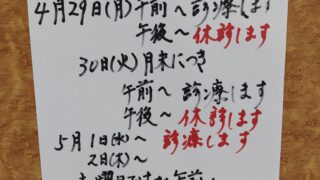 4月29日(月)午前〜診療します
午後〜休診します
30日(火)月末につき
午前〜診療します
午後〜休診します
5月1日(水)〜診療します
2日(木)〜